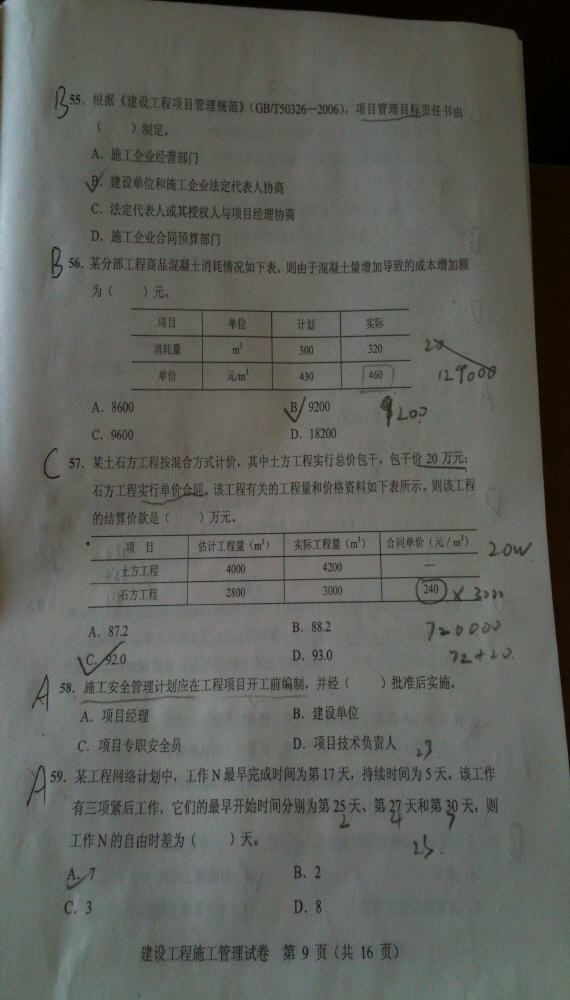 B 55. 根据《建设工程项目管理规范》(GB/T50326—2006),项目管理目标责任书由
(  )制定。
A. 施工企业经营部门
B. 建设单位和施工企业法定代表人协商
C. 法定代表人或其授权人与项目经理协商
D. 施工企业合同预算部门
B 56. 某分部工程商品混凝土消耗情况如下表,则由于混凝土量增加导致的成本增加额
为(  )元。
项目 单位 计划 实际
消耗量 m³ 300 320 20
单价 元/m³ 430 460 129000
A. 8600 B. 9200 9200
C. 9600 D. 18200
C 57. 某土石方工程按混合方式计价,其中土方工程实行总价包干,包干价 20 万元;
石方工程实行单价合同。该工程有关的工程量和价格资料如下表所示。则该工程
的结算价款是(  )万元。
项 目 估计工程量(m³) 实际工程量(m³) 合同单价(元/m³) 20W
土方工程 4000 4200 —
石方工程 2800 3000 240 × 3000
A. 87.2 B. 88.2 720000
C. 92.0 D. 93.0 72+20
A 58. 施工安全管理计划应在工程项目开工前编制,并经(  )批准后实施。
A. 项目经理 B. 建设单位
C. 项目专职安全员 D. 项目技术负责人 23
A 59. 某工程网络计划中,工作 N 最早完成时间为第 17 天,持续时间为 5 天。该工作
有三项紧后工作,它们的最早开始时间分别为第 25 天、第 27 天和第 30 天,则
2 4 7
工作 N 的自由时差为(  )天。
A. 7 B. 2
C. 3 D. 8
建设工程施工管理试卷 第 9 页(共 16 页)